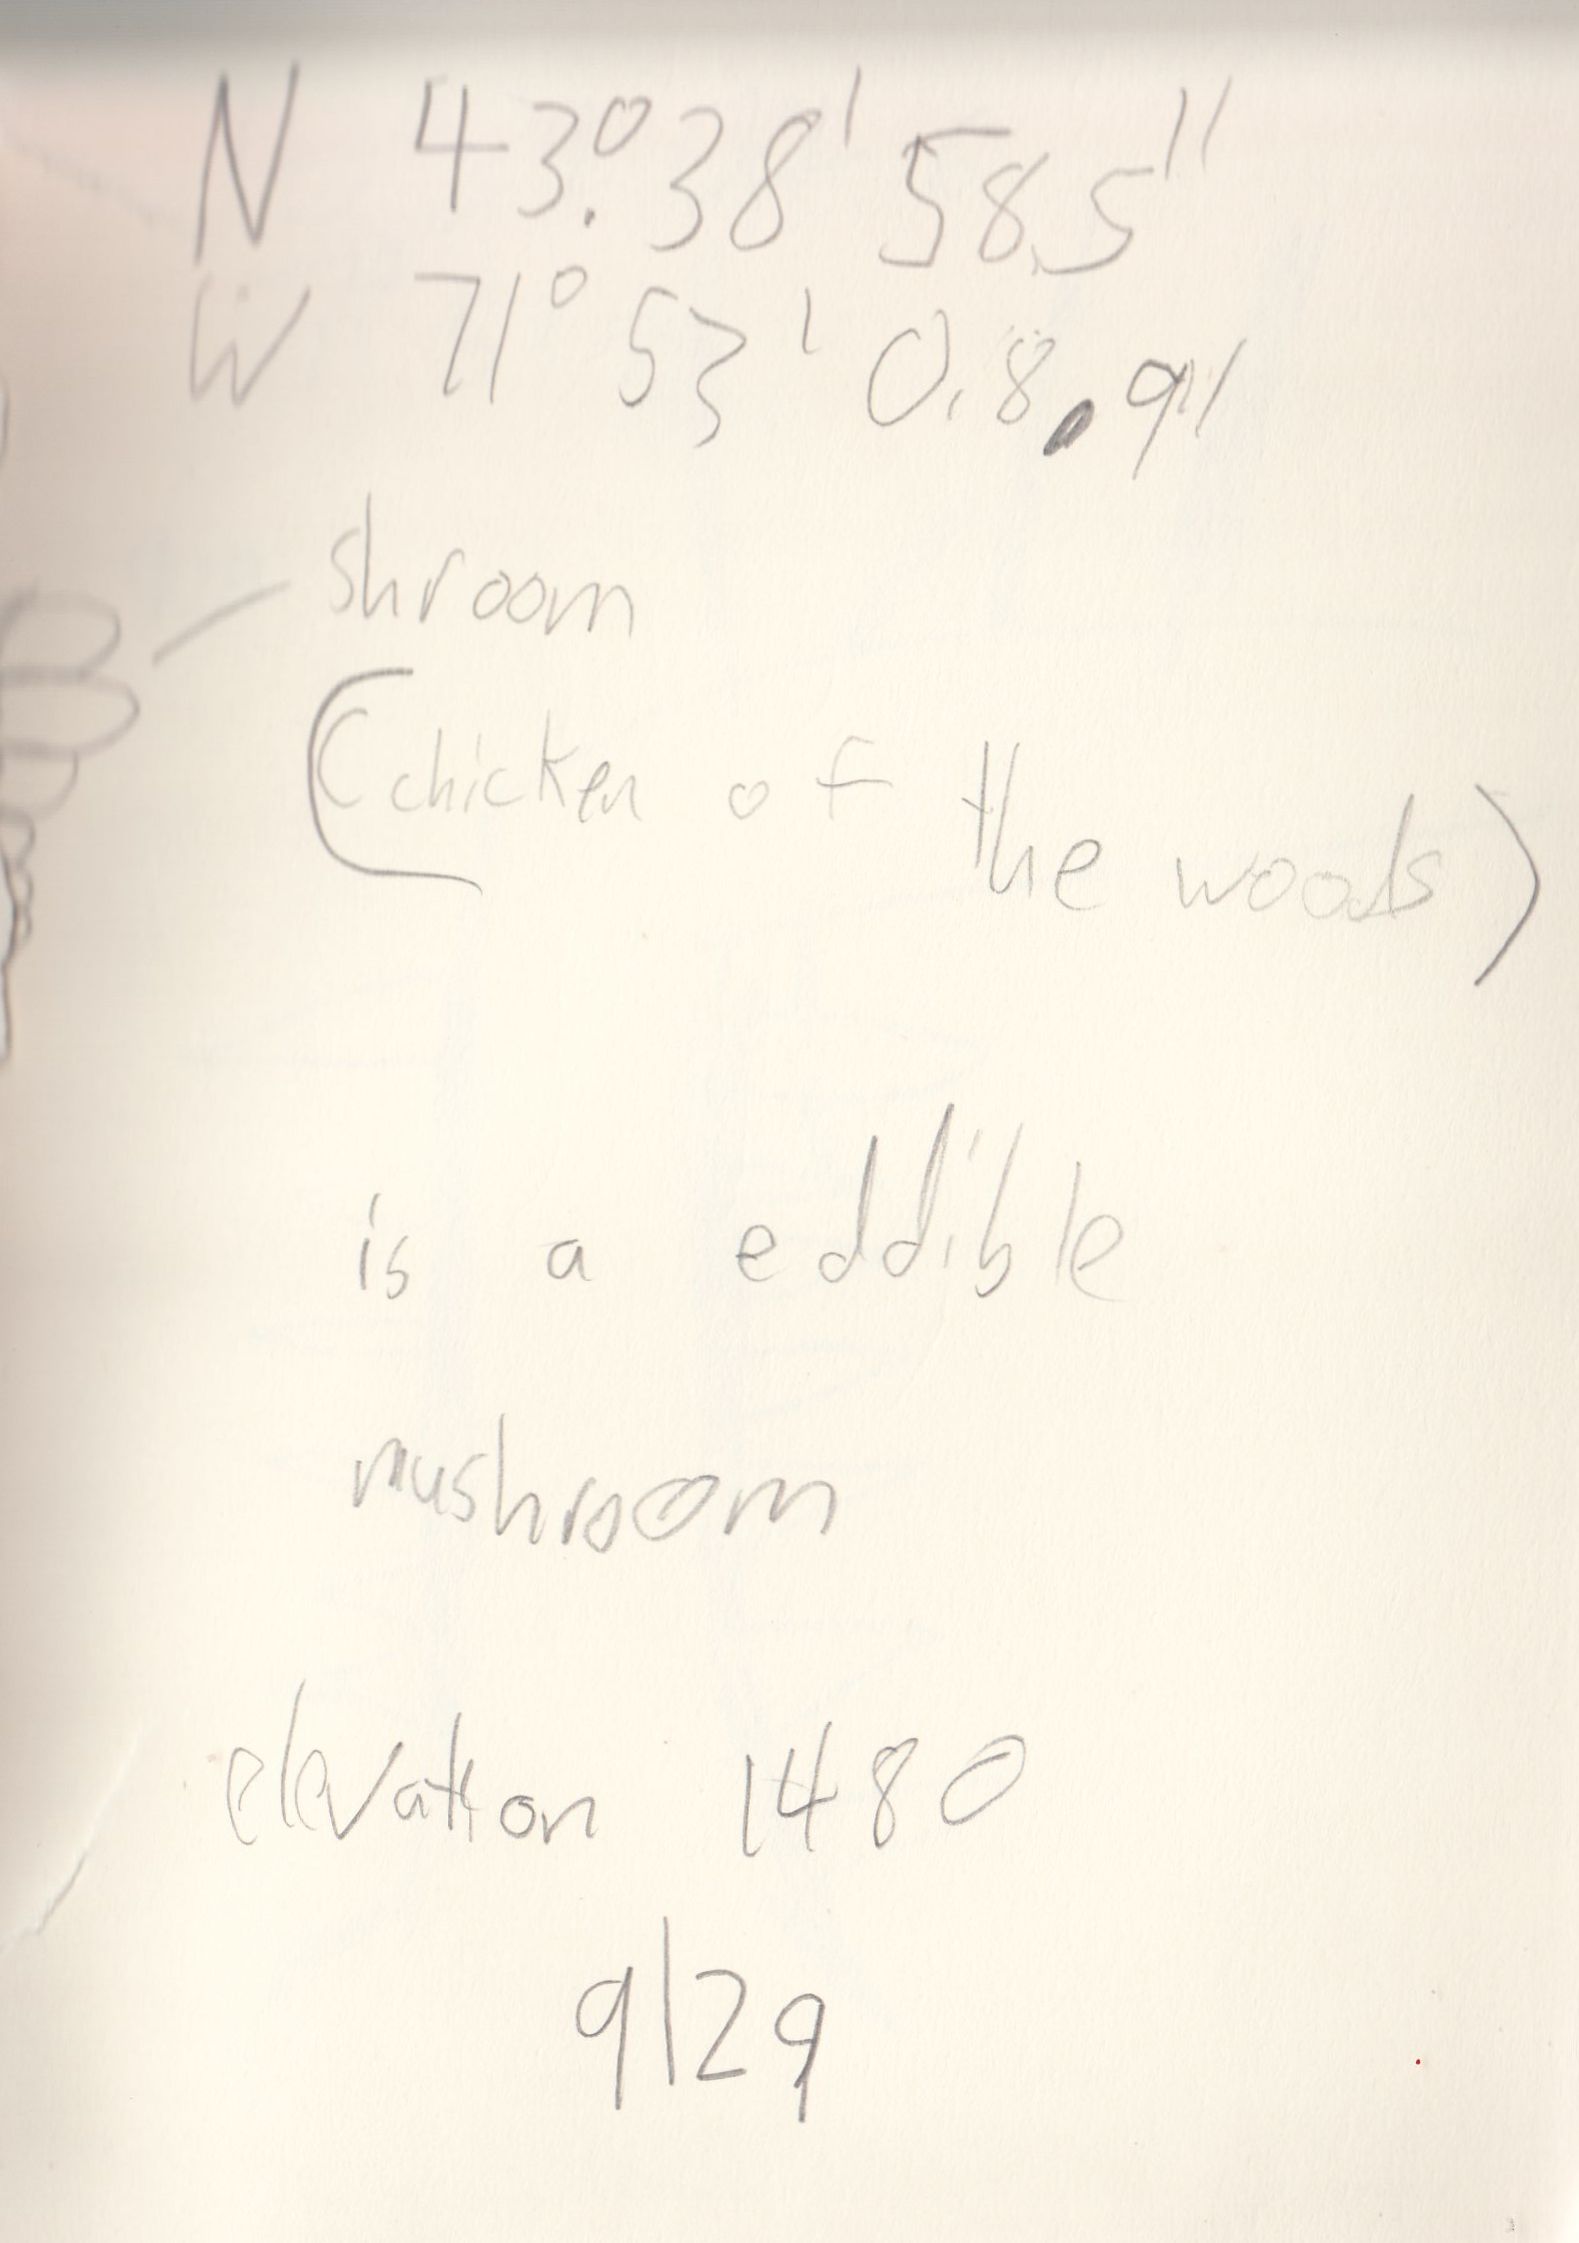 N 43.° 38' 58.5"
W 71° 53' 0.8.9"
shroom
(chicken of the woods)
is a eddible
mushroom
elevation 1480
9/29